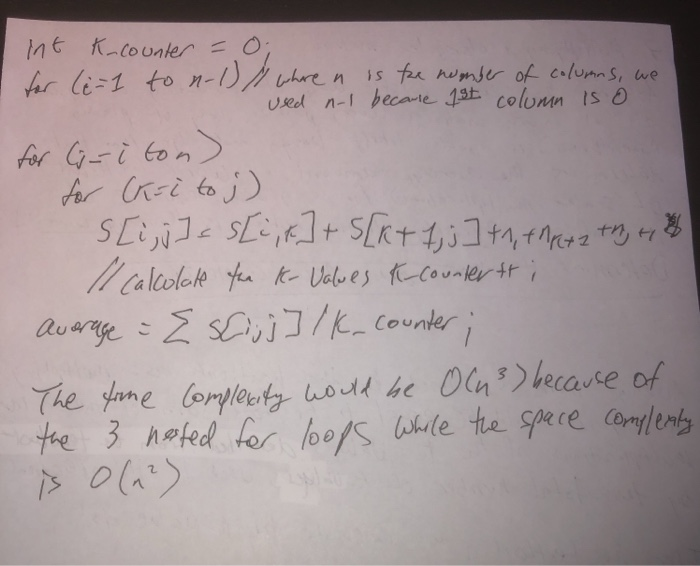 Int K-counter = 0;
for (i=1 to n-1) // where n is the number of columns, we
used n-1 because 1st column is 0
for (j=i to n)
for (K=i to j)
S[i,j]= S[i,k] + S[k+1,j] +n, +nk+2 +n,
// Calculate the K- Values K-counter++;
average = Σ S[i,j] / K_counter;
The time Complexity would be O(n³) because of
the 3 nested for loops while the space complexity
is O(n²)